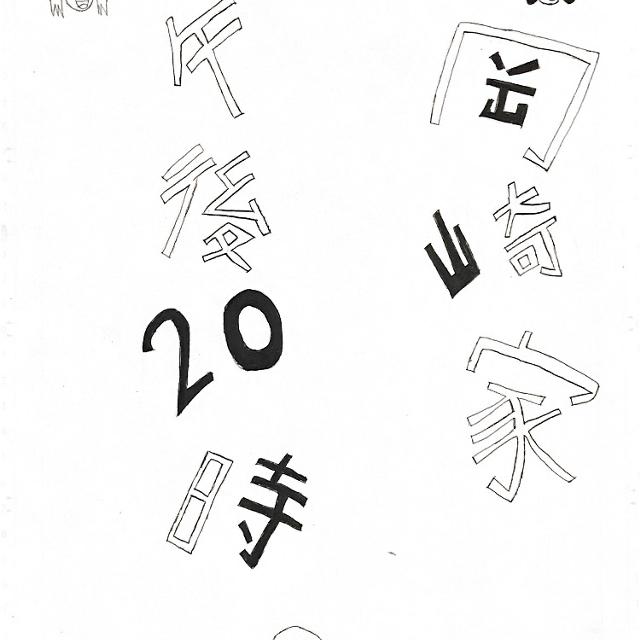 岡崎家
午後20時